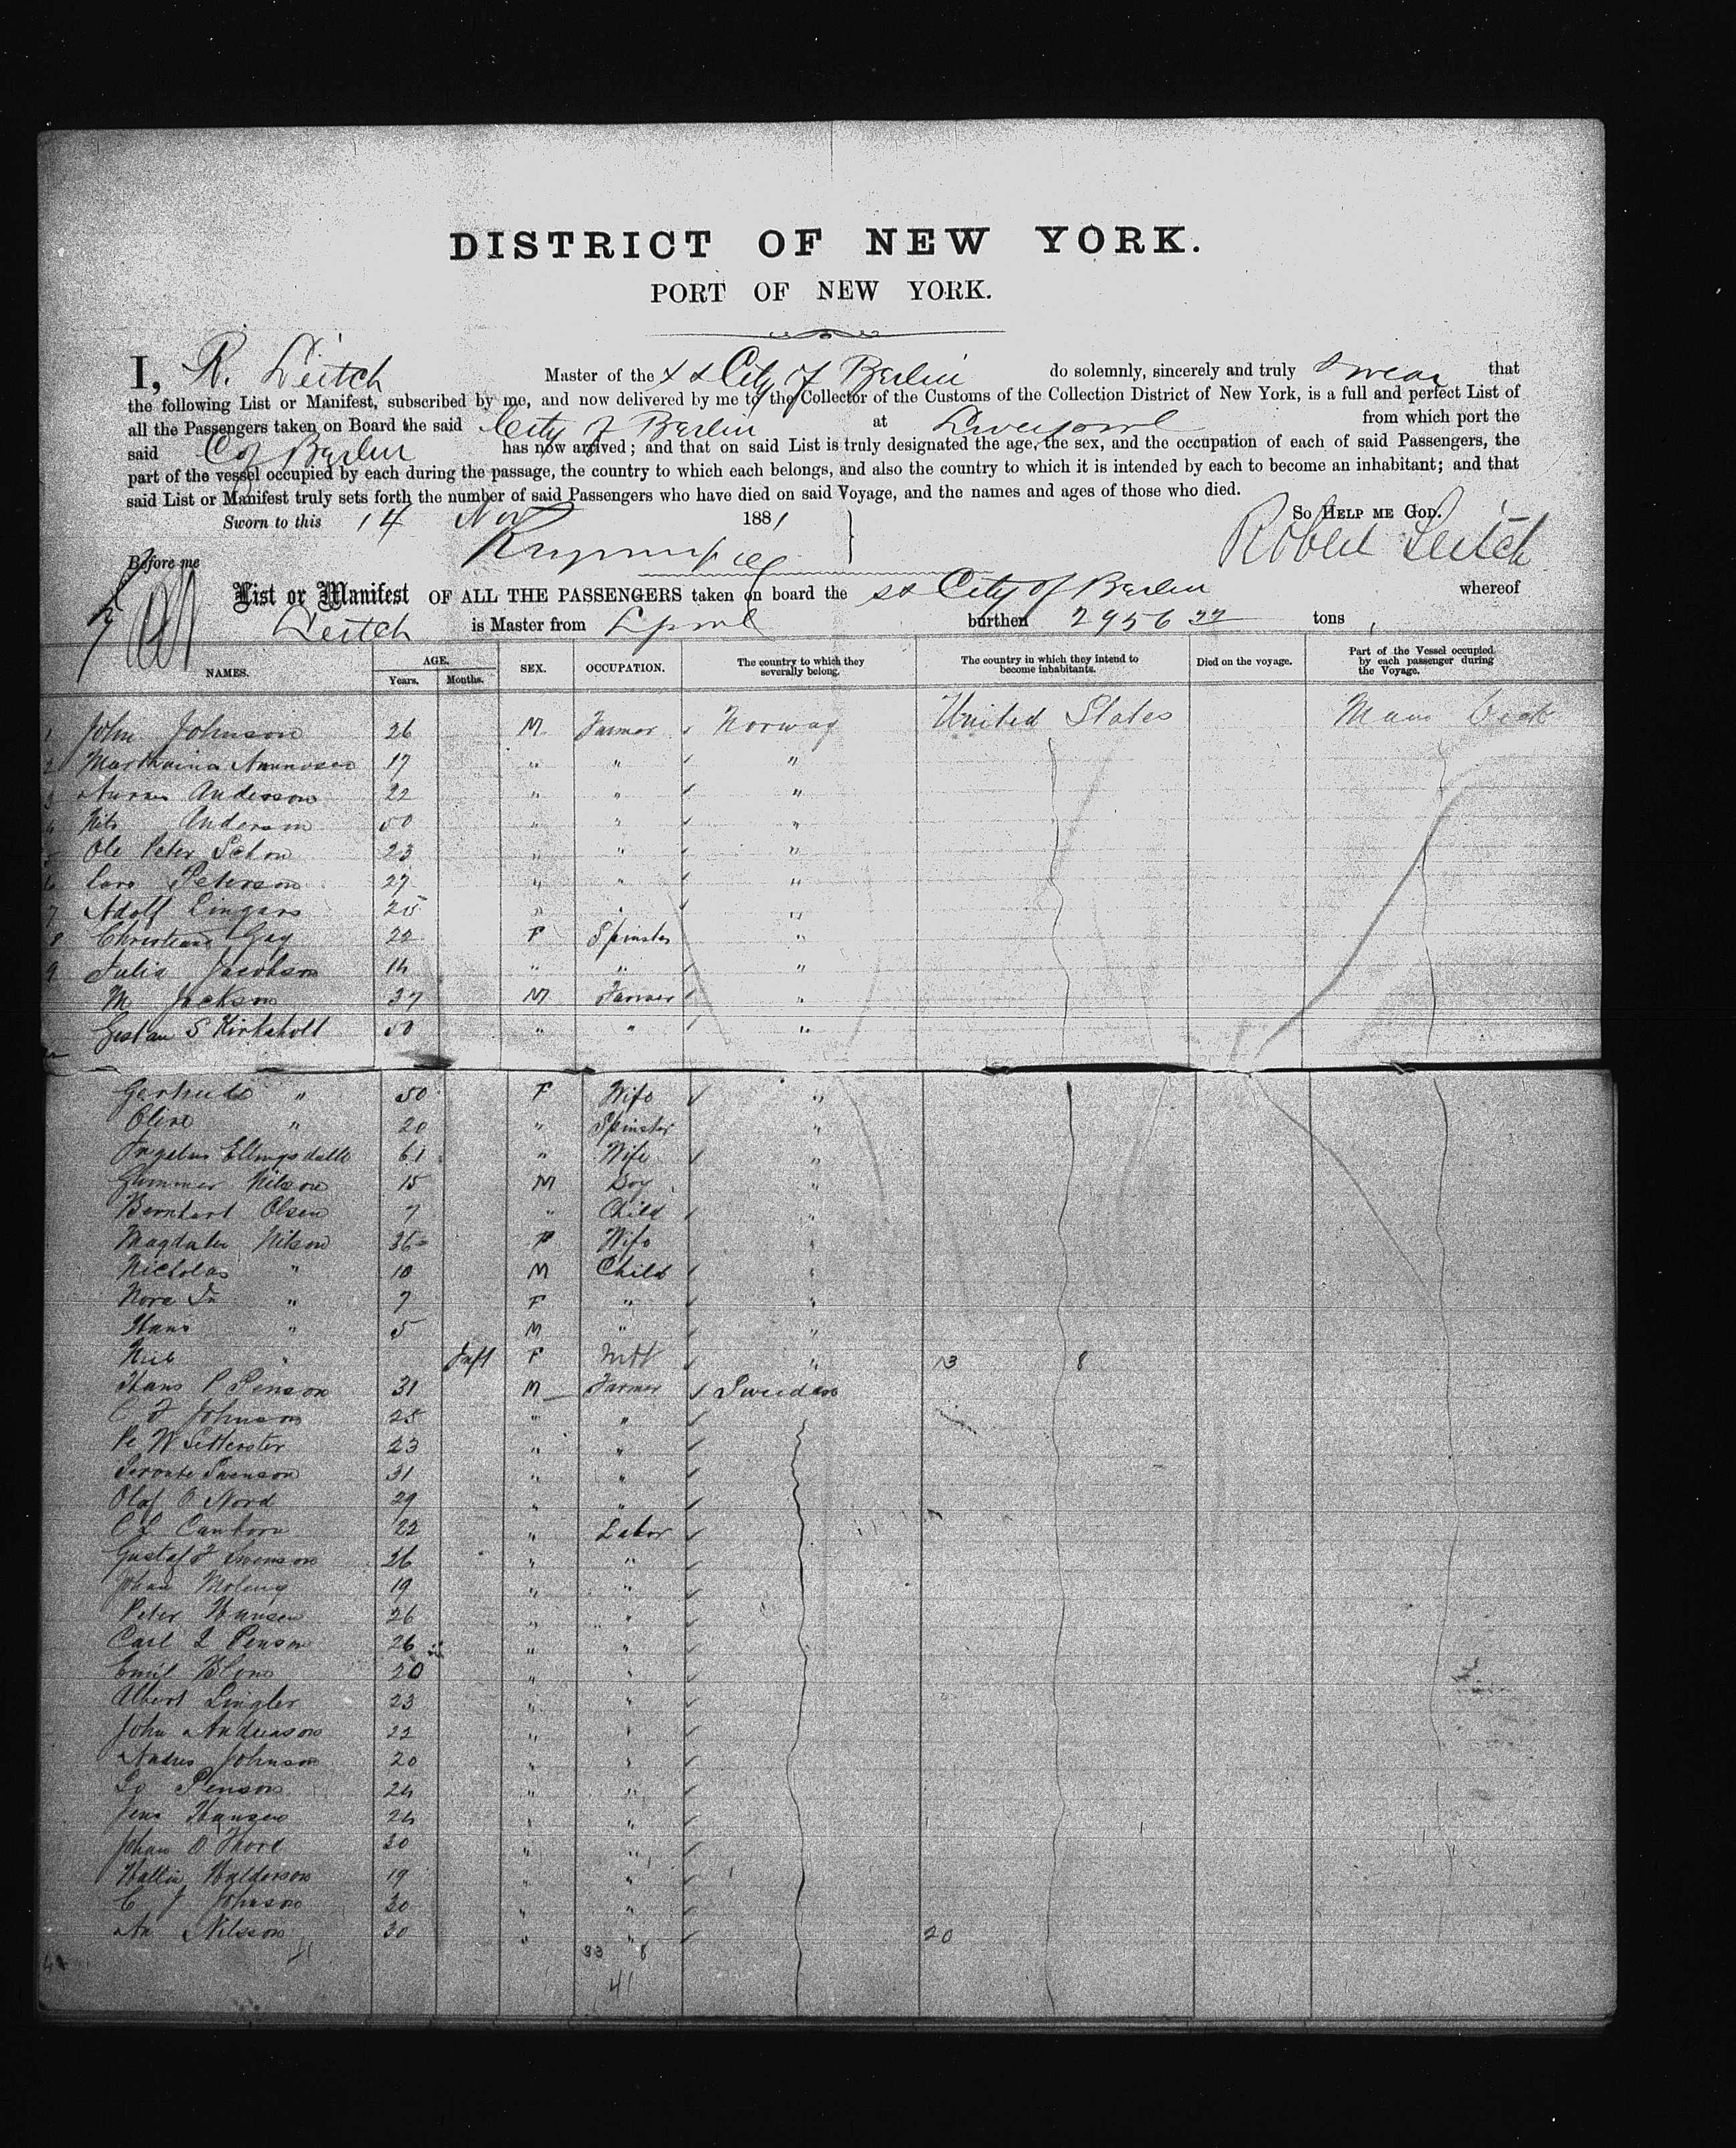 DISTRICT OF NEW YORK.
PORT OF NEW YORK.
I, R. Leitch Master of the SS City of Berlin do solemnly, sincerely and truly swear that
the following List or Manifest, subscribed by me, and now delivered by me to the Collector of the Customs of the Collection District of New York, is a full and perfect List of
all the Passengers taken on Board the said City of Berlin at Liverpool from which port the
said C of Berlin has now arrived; and that on said List is truly designated the age, the sex, and the occupation of each of said Passengers, the
part of the vessel occupied by each during the passage, the country to which each belongs, and also the country to which it is intended by each to become an inhabitant; and that
said List or Manifest truly sets forth the number of said Passengers who have died on said Voyage, and the names and ages of those who died.
Sworn to this 14 Nov 1881 So HELP ME GOD.
Robert Leitch
Before me
List or Manifest OF ALL THE PASSENGERS taken on board the SS City of Berlin whereof
Leitch is Master from Lpool burthen 2956 22 tons
NAMES. AGE. Years. Months. SEX. OCCUPATION. The country to which they severally belong. The country in which they intend to become inhabitants. Died on the voyage. Part of the Vessel occupied by each passenger during the Voyage.
1 John Johnson 26 M Farmer Norway United States Main Deck
2 17 " " "
3 Anderson 22 " " "
4 Nils Anderson 50 " " "
5 Ole Peter 23 " " "
6 Lars Peterson 27 " " "
7 Adolf 25 " " "
8 Christiana Gay 22 F Spinster "
9 Julia Jacobson 14 " " "
M Jackson 37 M Farmer "
Gustav S Kirkholt 50 " " "
Gertrude " 50 F Wife "
Oline " 20 " Spinster "
Ellingsdalle 61 " Wife "
Gummer Nilson 15 M Boy "
Bernhart Olsen 7 " Child "
Magdalen Nilson 36 F Wife "
Nicholas " 10 M Child "
Nora " 7 F " "
Hans " 5 M " "
" Inft F " 13 8
Hans P Penson 31 M Farmer Sweden
C F Johnson 25 " "
23 " "
Swenson 31 " "
Olof O Nord 29 " "
C L 22 " Labor
Gustaf F Swenson 26 " "
Johan 19 " "
Peter Hansen 26 " "
Carl L Penson 26 " "
Emil 20 " "
Albert Lingler 23 " "
John Andreason 22 " "
Andres Johnson 20 " "
Penson 24 " "
Jens Hansen 24 " "
Johan O 30 " "
19 " "
C J Johnson 30 " "
An Nilsson 30 " " 20
33 8
41